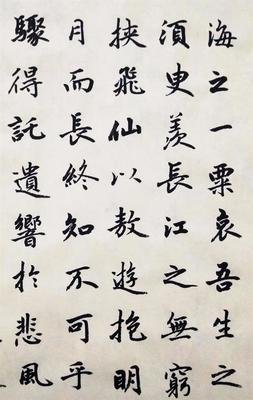 海之一粟哀吾生之
須臾羨長江之無窮
挾飛仙以敖遊抱明
月而長終知不可乎
驟得託遺響於悲風